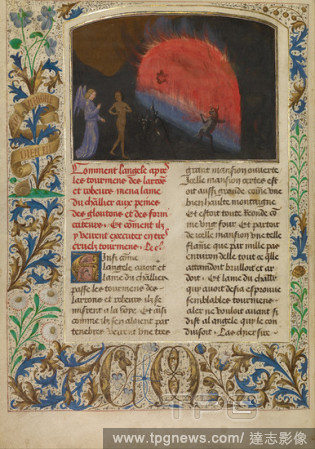 Comment langele apres
les tourmens des larrons
et robeurs mena lame
du chlier aux peines
des gloutons et des form
cateurs. Et comment ilz
y veirent executer entre
cruelz tourmens. Le
Ainsi comme
langele auoit et
lame du chlier
passe les tourmens des
larrons et robeurs ilz se
misrent a la voye. Et ausi
comme ilz sen aloient par
tenebres veirent vne tres
grant mansion ouuerte
Icelle mansion certes est
oit aussi grande come vne
bien haulte montaigne
Et estoit toute reonde come
vng four. Et partout
de icelle mansion vne telle
flame que par mile pas
enuiron delle tout ce quelle
attaindoit brulloit et ardoit
oit. Et lame du chlier
qui auoit desia espronue
semblables tourmens
aler ne vouloit auant si
dist al angele qui le con
duisoit. Las chier sire
TPG
www.tpgnews.com/ 達志影像